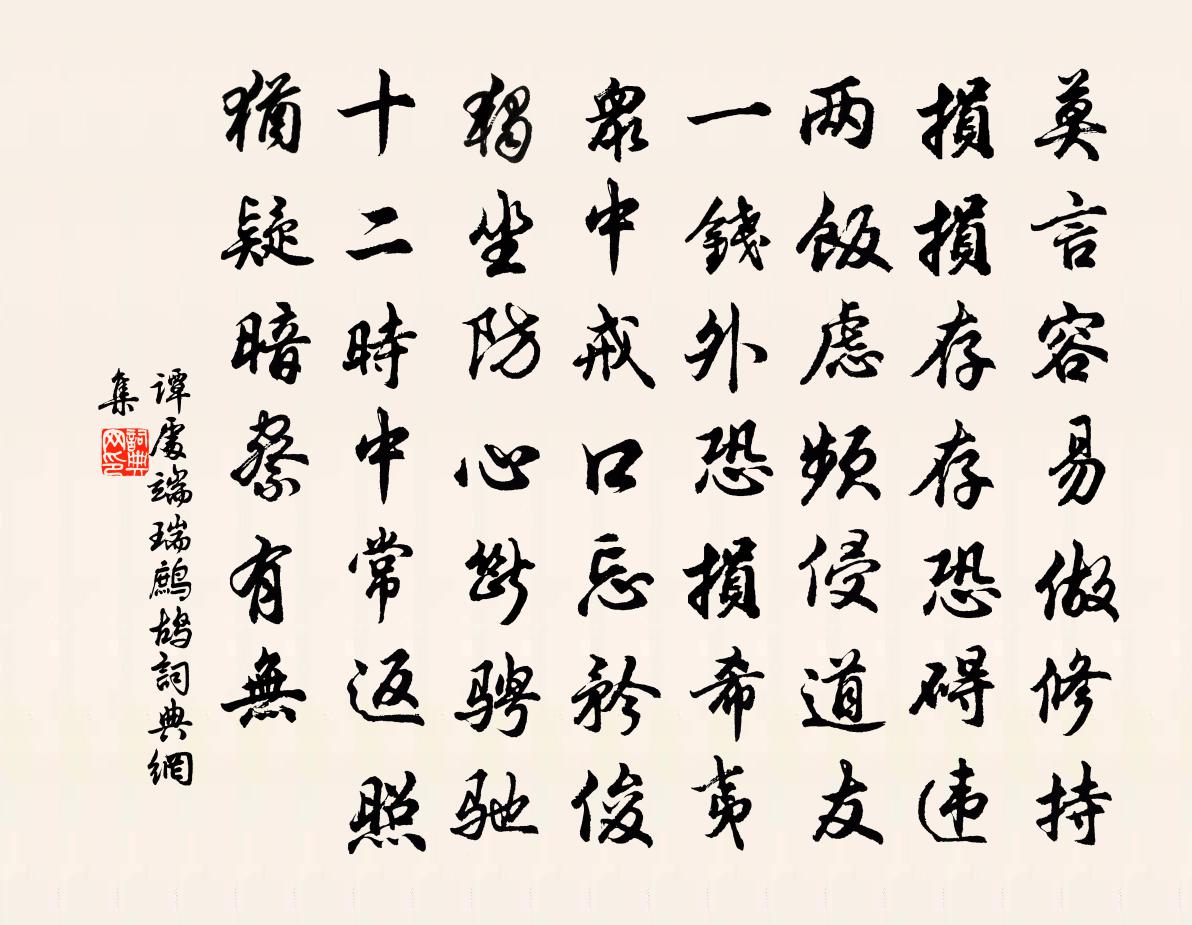 莫言容易做修持
損損存存恐碍违
两飯慮頻侵道友
一錢外恐損希夷
眾中戒口忘矜俊
獨坐防心斷騁驰
十二時中常返照
猶疑暗察有無
谭處端瑞鷓鴣詞典網
集
詞典
网印